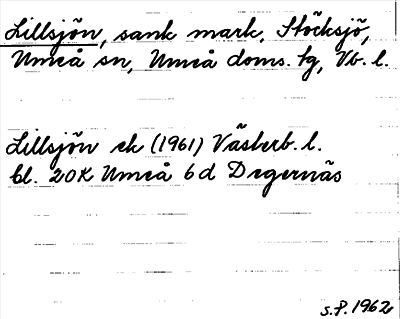 Lillsjön, sank mark, Stöcksjö,
Umeå sn, Umeå doms. tg, Vb. l.
Lillsjön ek (1961) Västerb. l.
bl. 20K Umeå 6d Degernäs
S.P. 1962